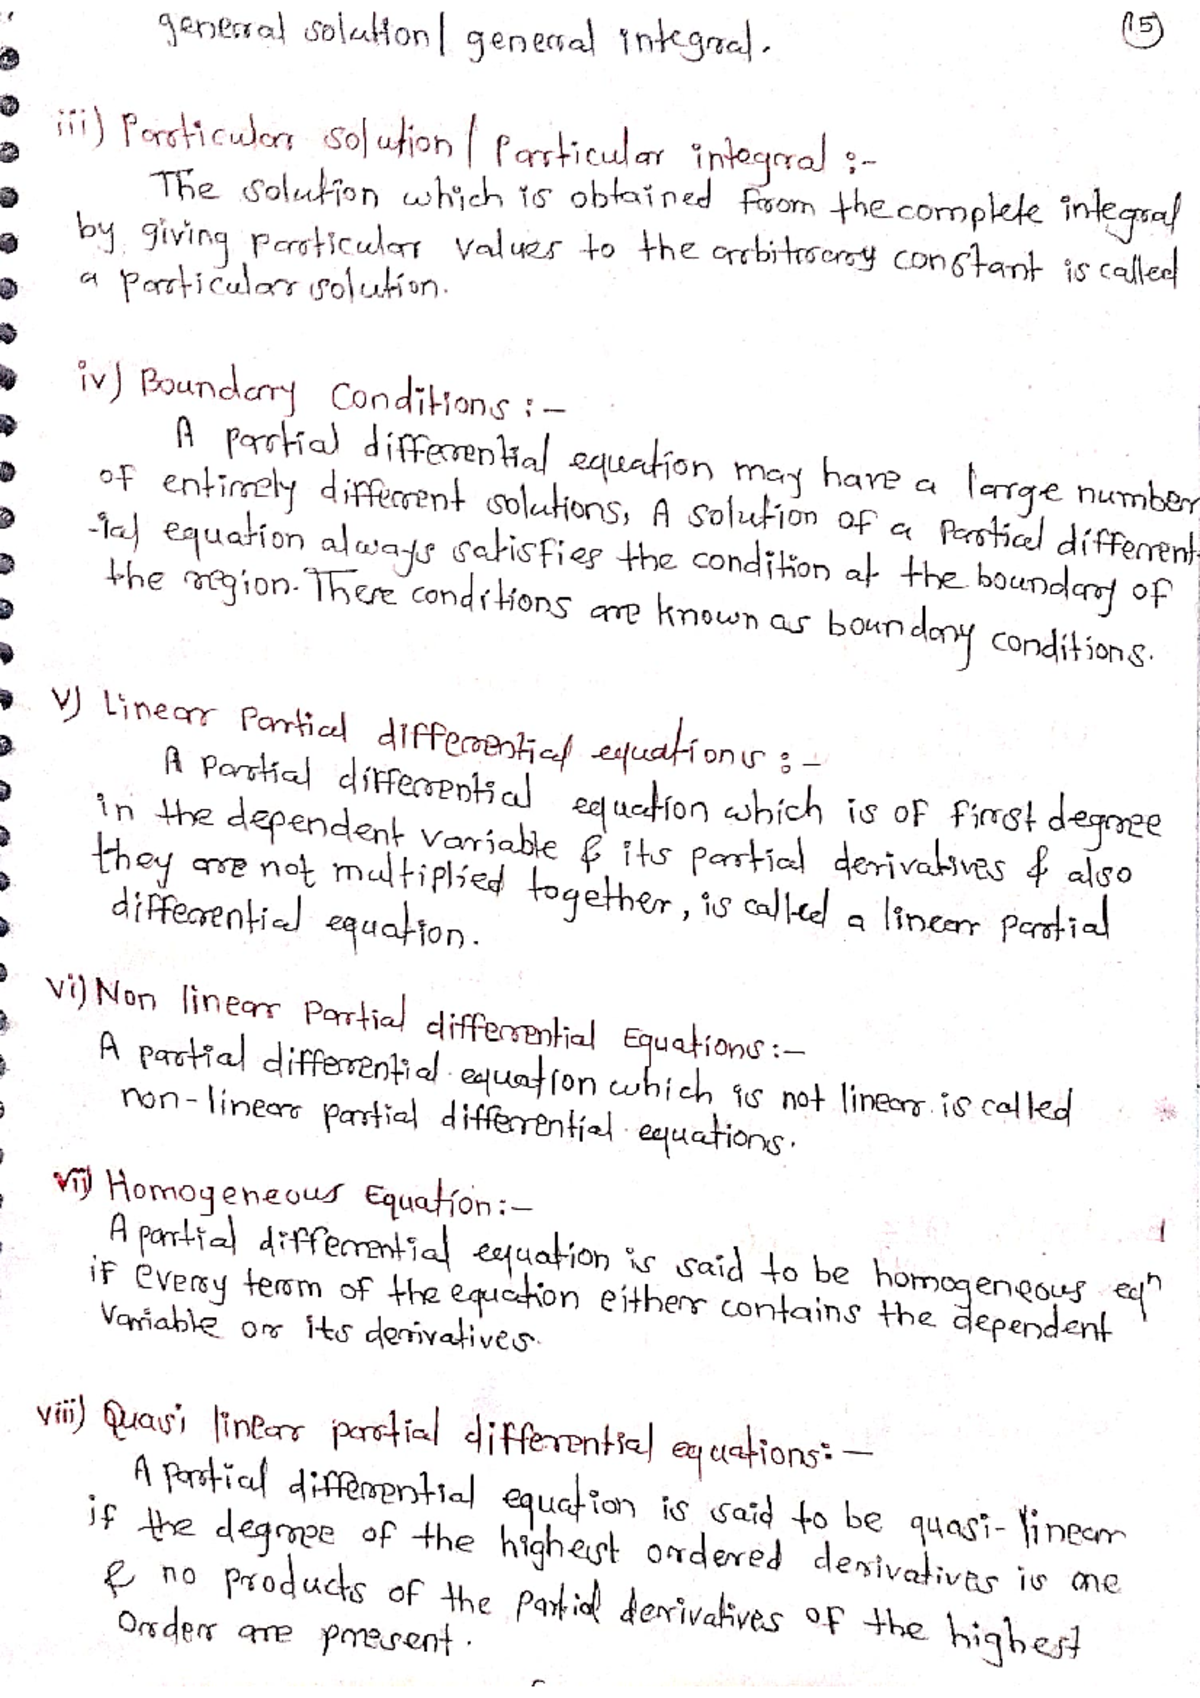 general solution/ general integral.
15
iii) Particular solution / Particular integral :-
The solution which is obtained from the complete integral
by giving particular values to the arbitrary constant is called
a particular solution.
iv) Boundary Conditions :-
A partial differential equation may have a large number
of entirely different solutions, A solution of a Partial different-
-ial equation always satisfies the condition at the boundary of
the region. These conditions are known as boundary conditions.
v) Linear Partial differential equations :-
A partial differential equation which is of first degree
in the dependent variable & its partial derivatives & also
they are not multiplied together, is called a linear partial
differential equation.
vi) Non linear Partial differential Equations :-
A partial differential equation which is not linear is called
non-linear partial differential equations.
vii) Homogeneous Equation :-
A partial differential equation is said to be homogeneous eqn
if every term of the equation either contains the dependent
variable or its derivatives.
viii) Quasi linear partial differential equations :-
A partial differential equation is said to be quasi-linear
if the degree of the highest ordered derivatives is one
& no products of the partial derivatives of the highest
order are present.